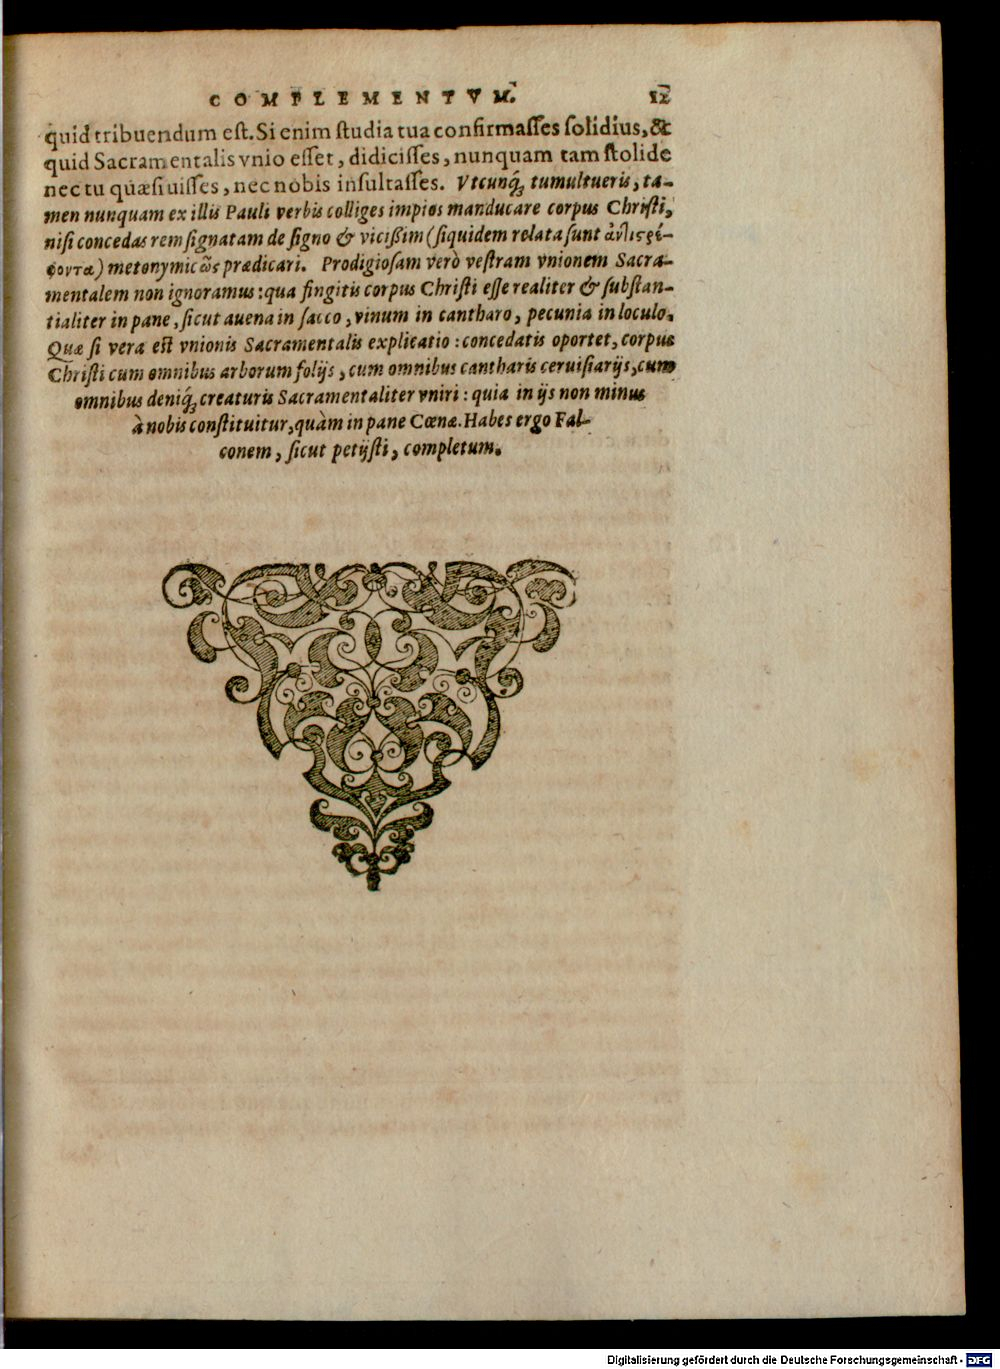 COMPLEMENTVM. 12
quid tribuendum est. Si enim studia tua confirmasses solidius, &
quid Sacramentalis vnio esset, didicisses, nunquam tam stolide
nec tu quæsiuisses, nec nobis insultasses. Vtcunq; tumultueris, ta-
men nunquam ex illis Pauli verbis colliges impios manducare corpus Christi,
nisi concedas rem signatam de signo & vicißim (siquidem relata sunt ἀντιστρέ-
φοντα) metonymicῶς prædicari. Prodigiosam verò vestram vnionem Sacra-
mentalem non ignoramus: qua fingitis corpus Christi esse realiter & substan-
tialiter in pane, sicut auena in sacco, vinum in cantharo, pecunia in loculo.
Quæ si vera est vnionis Sacramentalis explicatio: concedatis oportet, corpus
Christi cum omnibus arborum folijs, cum omnibus cantharis ceruisiarijs, cum
omnibus deniq; creaturis Sacramentaliter vniri: quia in ijs non minus
à nobis constituitur, quàm in pane Cœnæ. Habes ergo Fal-
conem, sicut petijsti, completum.
Digitalisierung gefördert durch die Deutsche Forschungsgemeinschaft - DFG